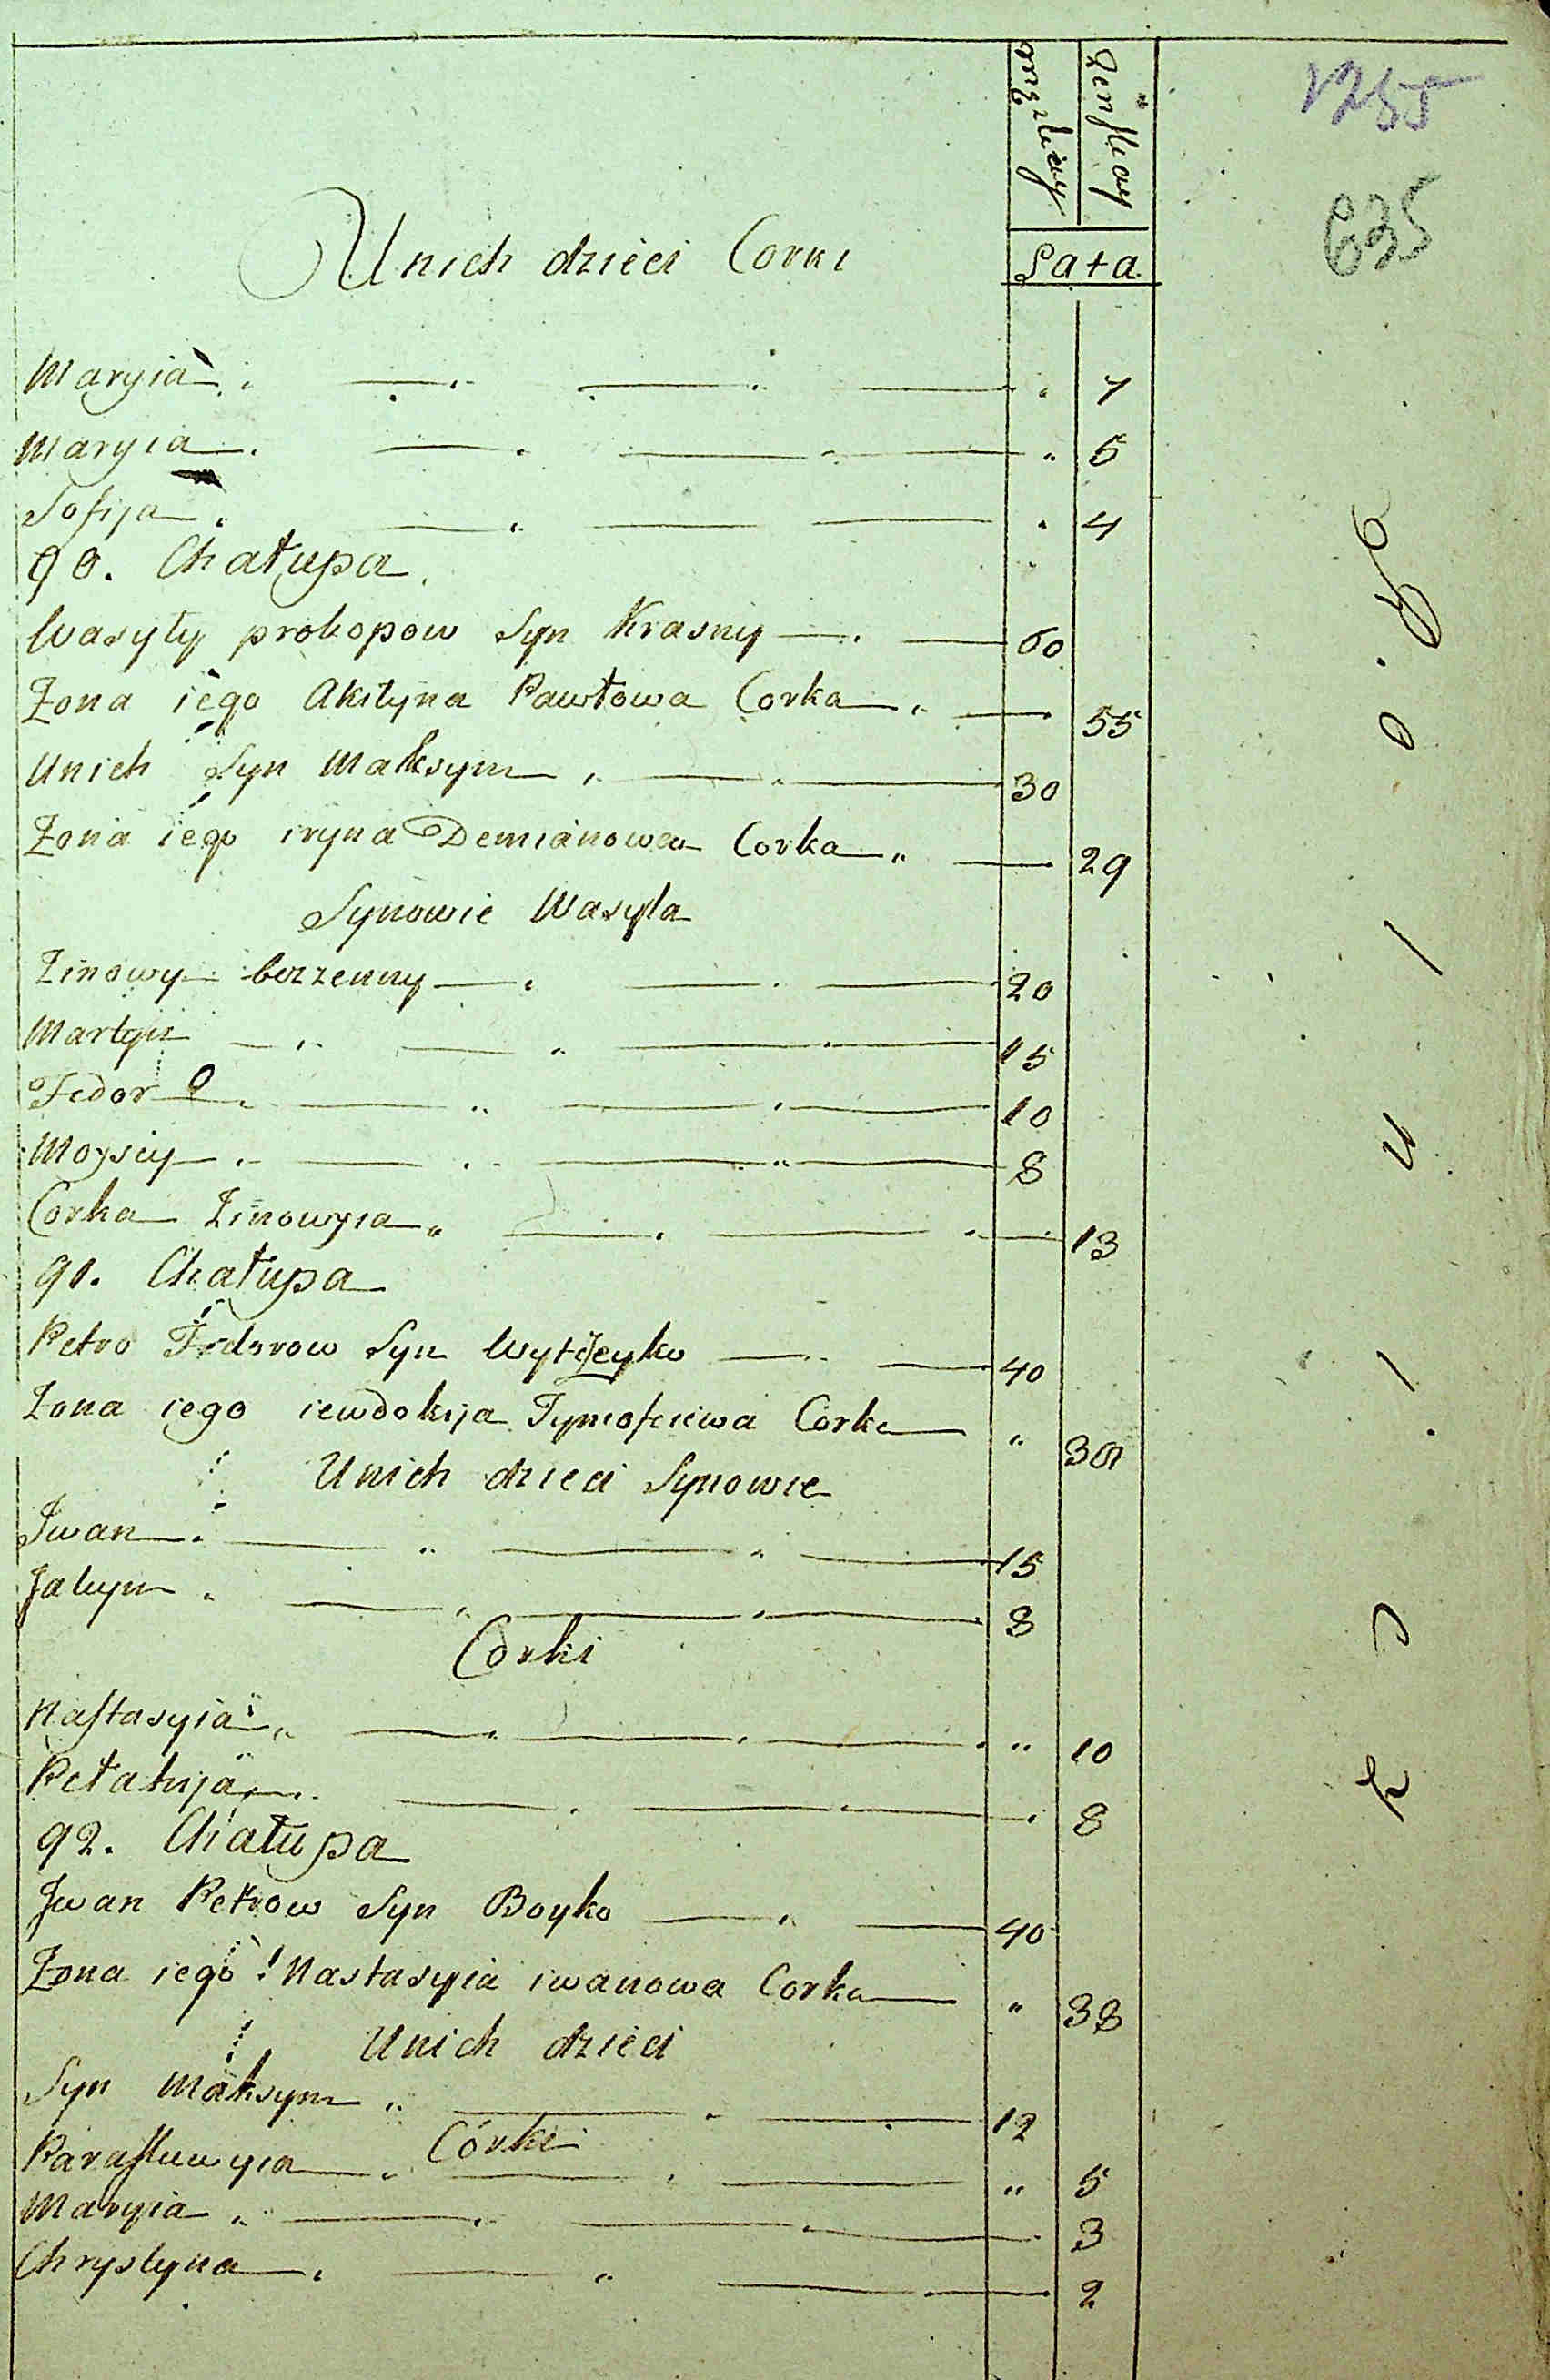 Męzkiey Zenskiey
1255
635
Unich dzieci Corki Lata
Maryia 7
Maryia 5
Sofija 4
90. Chałupa
Wasyly prokopow Syn Krasny 60
Zona iego Akilyna Pawłowa Corka 55
Unich Syn Maksym 30
Zona iego iryna Demianowa Corka 29
Synowie Wasyla
Zinowy bezzenny 20
Martyn 15
Fedor 10
Moysiy 8
Corka Zinowyia 13
91. Chałupa
Petro Fedorow Syn 40
Zona iego iewdokija Tymofeiewa Corka
Unich dzieci Synowie
Iwan 15
Jakym 8
Corki
Nastasyia 10
Pełahija 8
92. Chałupa
Iwan Petrow Syn Boyko 40
Zona iego Nastasyia iwanowa Corka 38
Unich dzieci
Syn Maksym 12
Córki
Paraskewyia 5
Maryia 3
Chrystyna 2